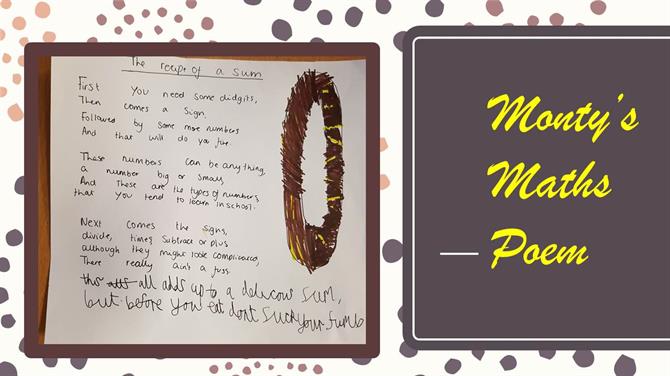 The recipe of a sum
First you need some didgits,
Then comes a sign,
Followed by some more numbers
And that will do you fine.
These numbers can be anything,
a number big or small,
And These are the types of numbers
that you tend to learn in school.
Next comes the signs,
divide, times, subtract or plus
although they might look complicated,
There really ain't a fuss.
this all adds up to a delicous sum,
but before you eat dont suck your fumb
Monty's
Maths
Poem